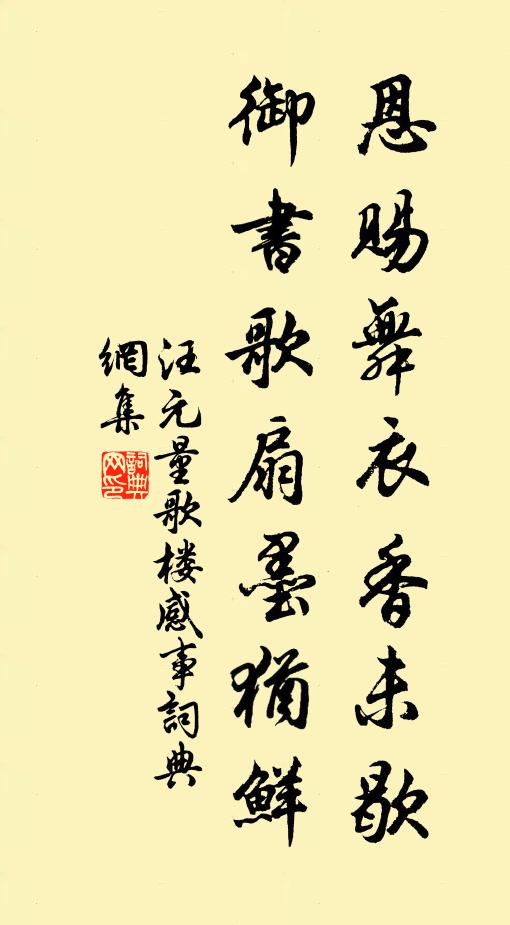 恩賜舞衣香未歇
御書歌扇墨猶鮮
汪元量歌楼感事詞典
網集
詞典网印